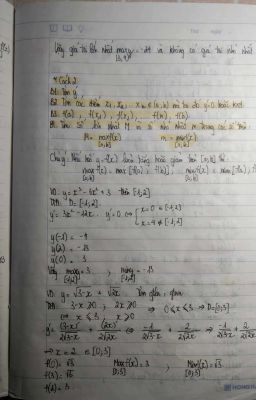 Vậy giá trị lớn nhất max y = và không có giá trị nhỏ nhất
* Cách 2
B1: Tìm y'
B2: Tìm các điểm x1, x2, ... xn ∈ (a, b) mà tại đó y' = 0 hoặc
B3: f(a), f(x1), f(x2), f(xn), f(b)
B4: Tìm số lớn nhất M và số nhỏ nhất m trong các số trên:
M = max f(x) m = min f(x)
[a,b] [a,b]
Chú ý: Nếu hs y = f(x) luôn tăng hoặc giảm trên [a,b] thì:
max f(x) = max {f(a), f(b)}, min f(x) = min {f(a),
[a,b] [a,b]
VD: y = x³ - 6x² + 3 trên [-1,2]
TXĐ: D = [-1,2]
y' = 3x² - 12x y' = 0 ⇔ [ x = 0 ∈ [-1,2]
x = 4 ∉ [-1,2]
y(-1) = -4
y(2) = -13
y(0) = 3
Vậy max y = 3 , min y = -13
[-1,2] [-1,2]
VD: y = √3-x + √2x Tìm
TXĐ: 3-x ≥ 0, 2x ≥ 0 ⇔ 0 ≤ x ≤ 3 ⇒ D = [0,3]
⇔ x ≤ 3, x ≥ 0
y' = (3-x)'/2√3-x + (2x)'/2√2x ⇔ -1/2√3-x + 2/2√2x ⇒ -1/2√3-x + 2/2√2x
⇒ x = 2 ∈ [0,3]
f(0) = √3 Max f(x) = 3 , Min f(x) = √3
f(3) = √6 [0,3] [0,3]
f(2) = 3